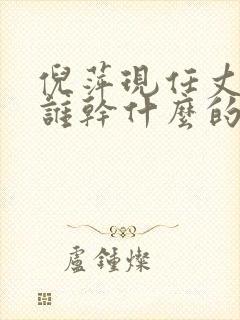 倪萍現任丈
誰幹什麼的
盧鍾燦